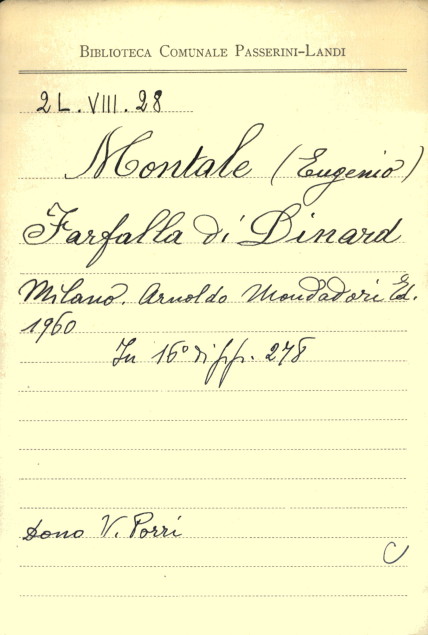 BIBLIOTECA COMUNALE PASSERINI-LANDI
2L.VIII.28
Montale (Eugenio)
Farfalla di Dinard
Milano. Arnoldo Mondadori Ed.
1960
In 16° di pp. 278
Dono V. Porri
C